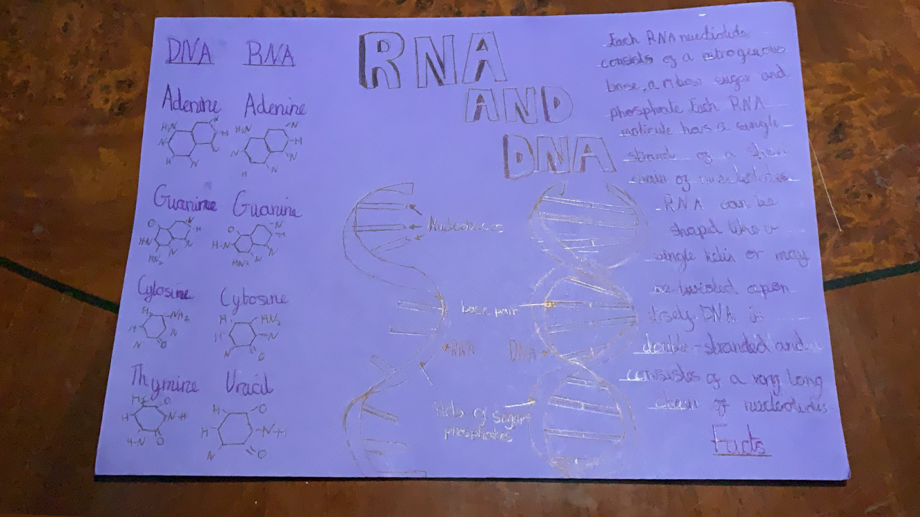 DNA RNA
Adenine Adenine
Guanine Guanine
Cytosine Cytosine
Thymine Uracil
RNA
AND
DNA
base pair
RNA DNA
of sugar
phosphates
Each RNA
consists of a nitrogenous
base, a ribose sugar and
phosphate Each RNA
has a single
strand of a
chain of
RNA can be
shaped like a
single helix or may
be twisted upon
itself DNA is
double-stranded and
consists of a very long
chain of nucleotides
Facts